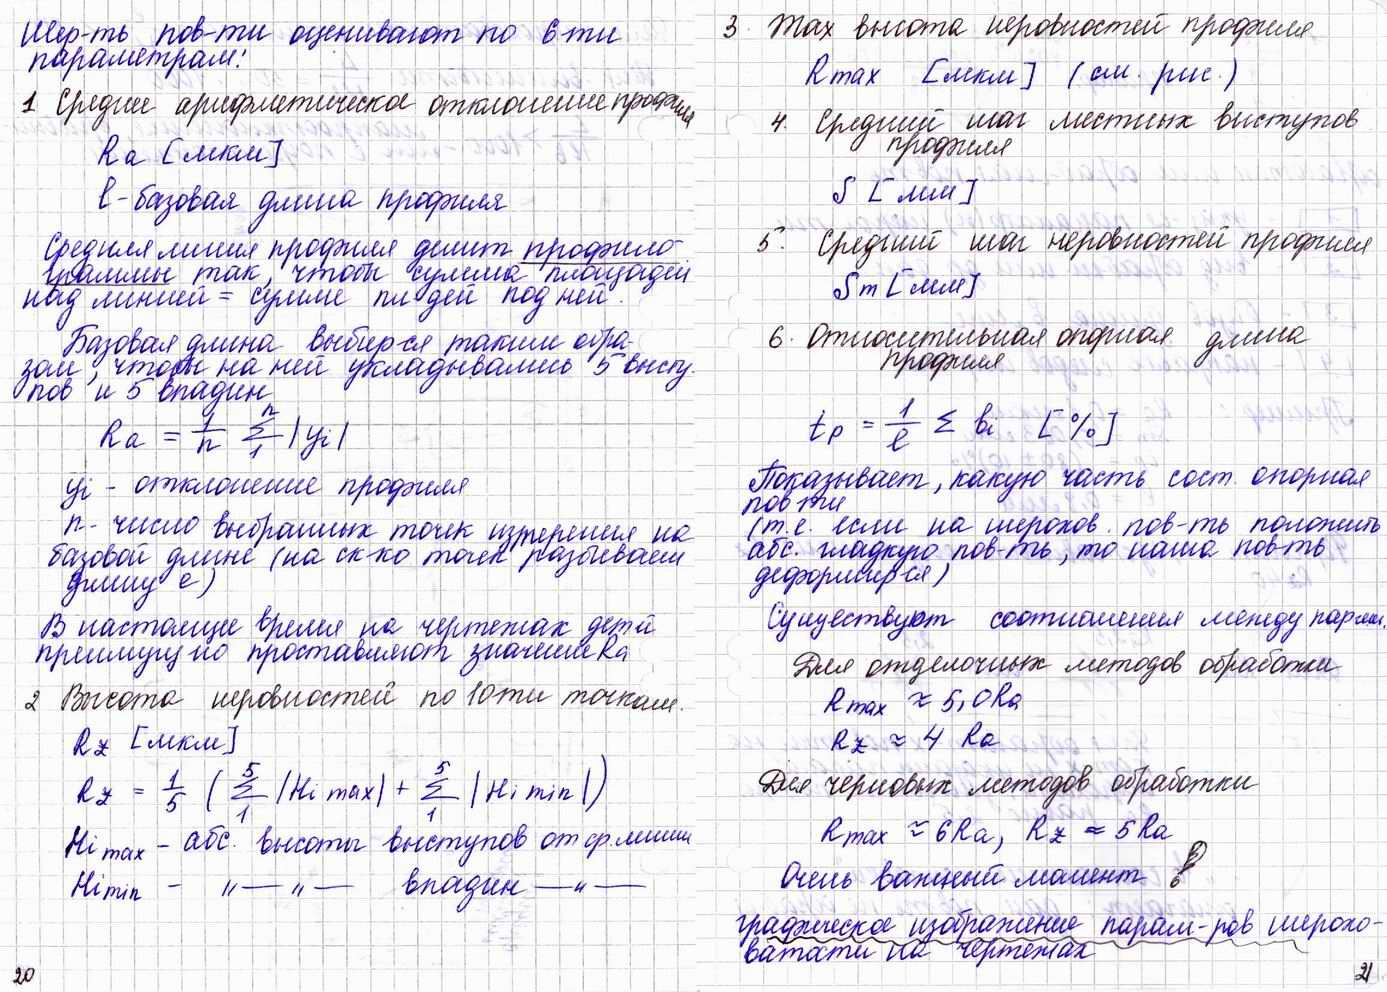 Шер-ть пов-ти оценивают по 6-ти
параметрам:
1 Среднее арифметическое отклонение профиля
Ra [мкм]
l - базовая длина профиля
Средняя линия профиля делит профило-
граммы так, чтобы сумма площадей
над линией = сумме пл-дей под ней.
Базовая длина выбир-ся таким обра-
зом, чтобы на ней укладывались 5 высту
пов и 5 впадин
Ra = 1/n Σ₁ⁿ |yi|
yi - отклонение профиля
n - число выбранных точек измерения на
базовой длине (на ск-ко точек разбиваем
длину l)
В настоящее время на чертежах дет-й
преимущ-но проставляют значение Ra
2 Высота неровностей по 10ти точкам.
Rz [мкм]
Rz = 1/5 (Σ₁⁵ |Hi max| + Σ₁⁵ |Hi min|)
Hi max - абс. высоты выступов от ср. линии
Hi min - "—"— впадин —"—
20
3. Max высота неровностей профиля
Rmax [мкм] (см. рис.)
4. Средний шаг местных выступов
профиля
S [мм]
5. Средний шаг неровностей профиля
Sm [мм]
6. Относительная опорная длина
профиля
tp = 1/l Σ bi [%]
Показывает, какую часть сост. опорная
пов-ти
(т.е. если на шерохов. пов-ть положить
абс. гладкую пов-ть, то наша пов-ть
деформир-ся)
Существуют соотношения между парам.
Для отделочных методов обработки
Rmax ≈ 5,0Ra
Rz ≈ 4 Ra
Для черновых методов обработки
Rmax ≈ 6Ra, Rz ≈ 5Ra
Очень важный момент !
графическое изображение парам-ров шерохо-
ватости на чертежах
21